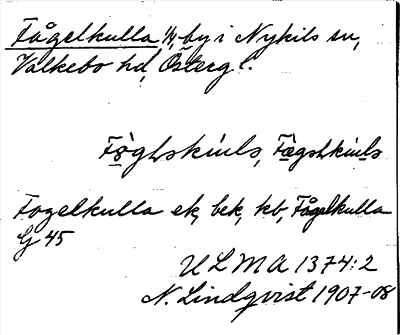 Fågelkulla ¼, by i Nykils sn,
Valkebo hd, Österg l.
Fo̱gLskínls, Fa̱gsLkínls
Fogelkulla ek, bek, kb, Fågelkulla
G 45
ULMA 1374:2
N. Lindqvist 1907-08